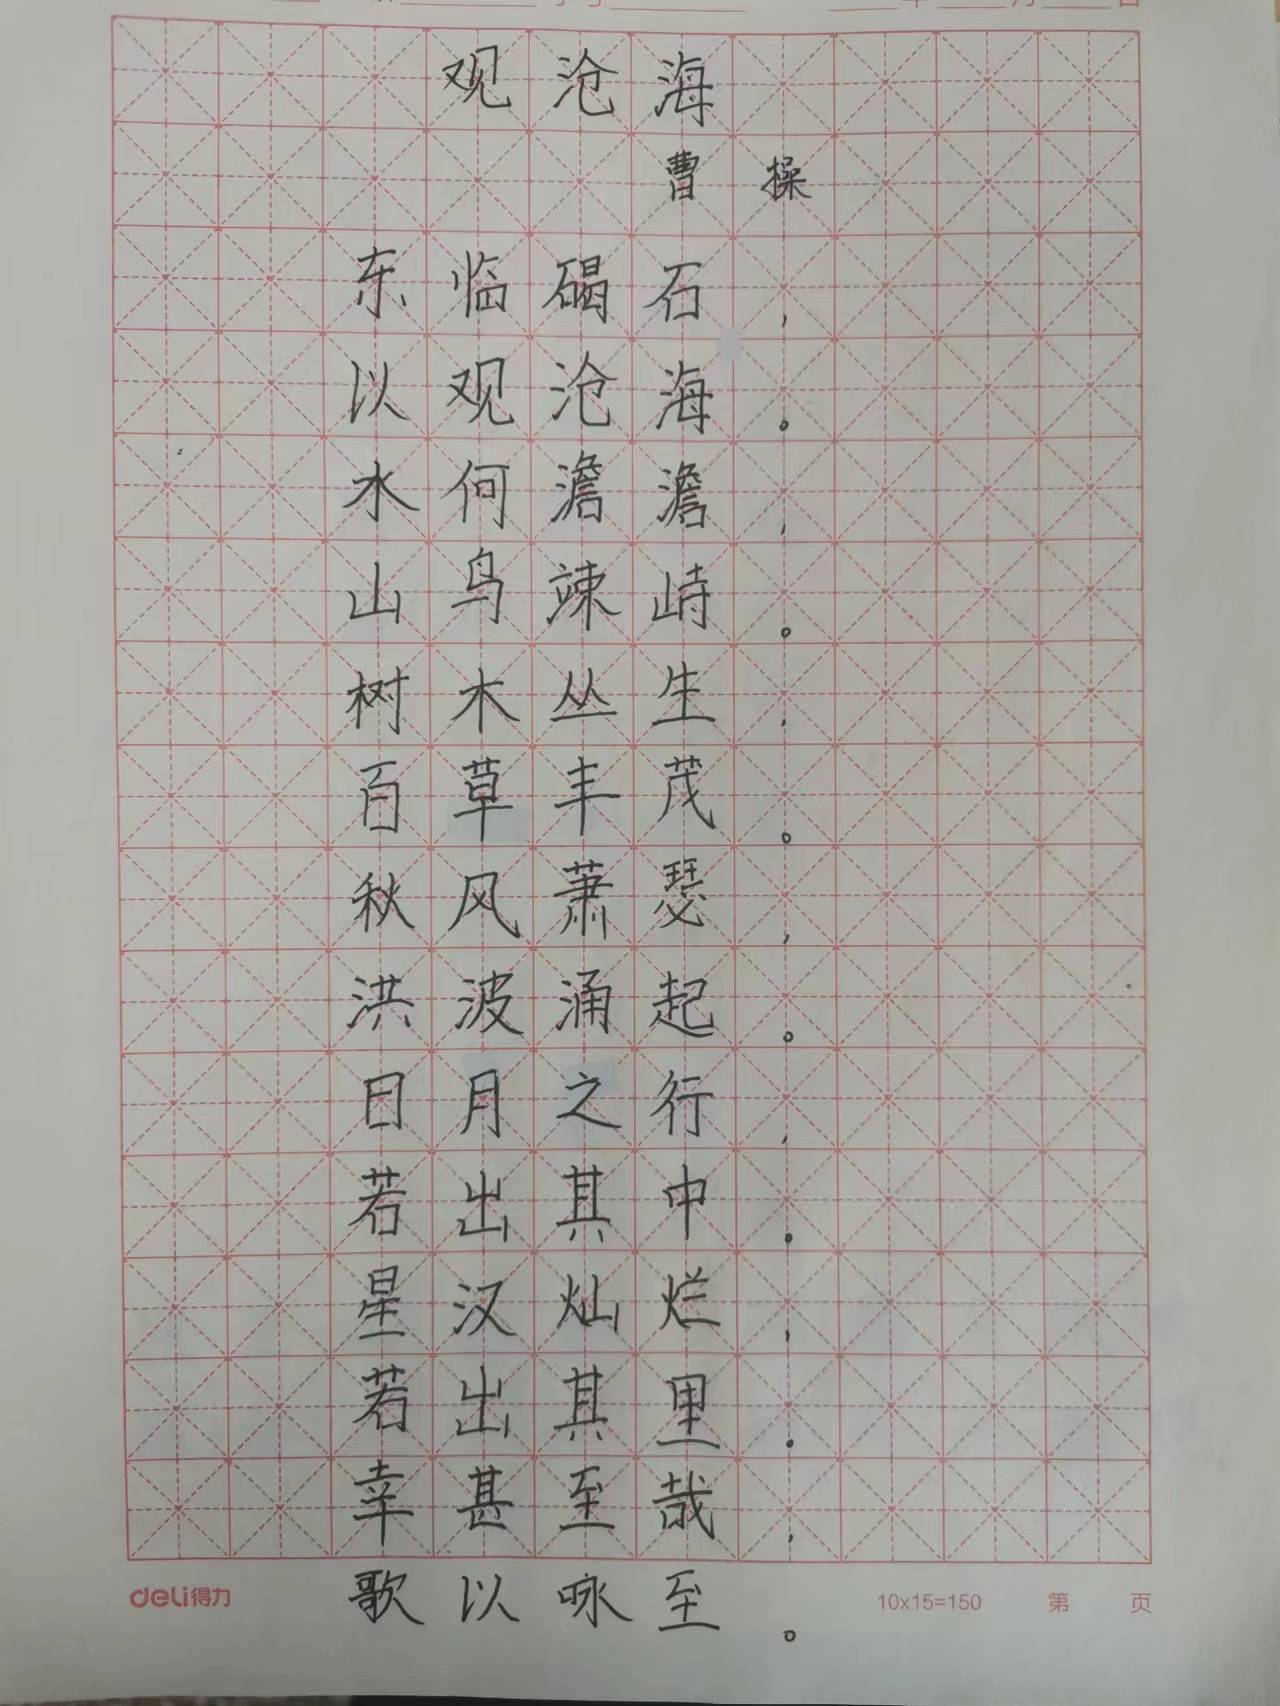 观沧海
曹操
东临碣石，
以观沧海。
水何澹澹，
山鸟竦峙。
树木丛生，
百草丰茂。
秋风萧瑟，
洪波涌起。
日月之行，
若出其中。
星汉灿烂，
若出其里。
幸甚至哉，
歌以咏至。
deli得力 10x15=150 第 页